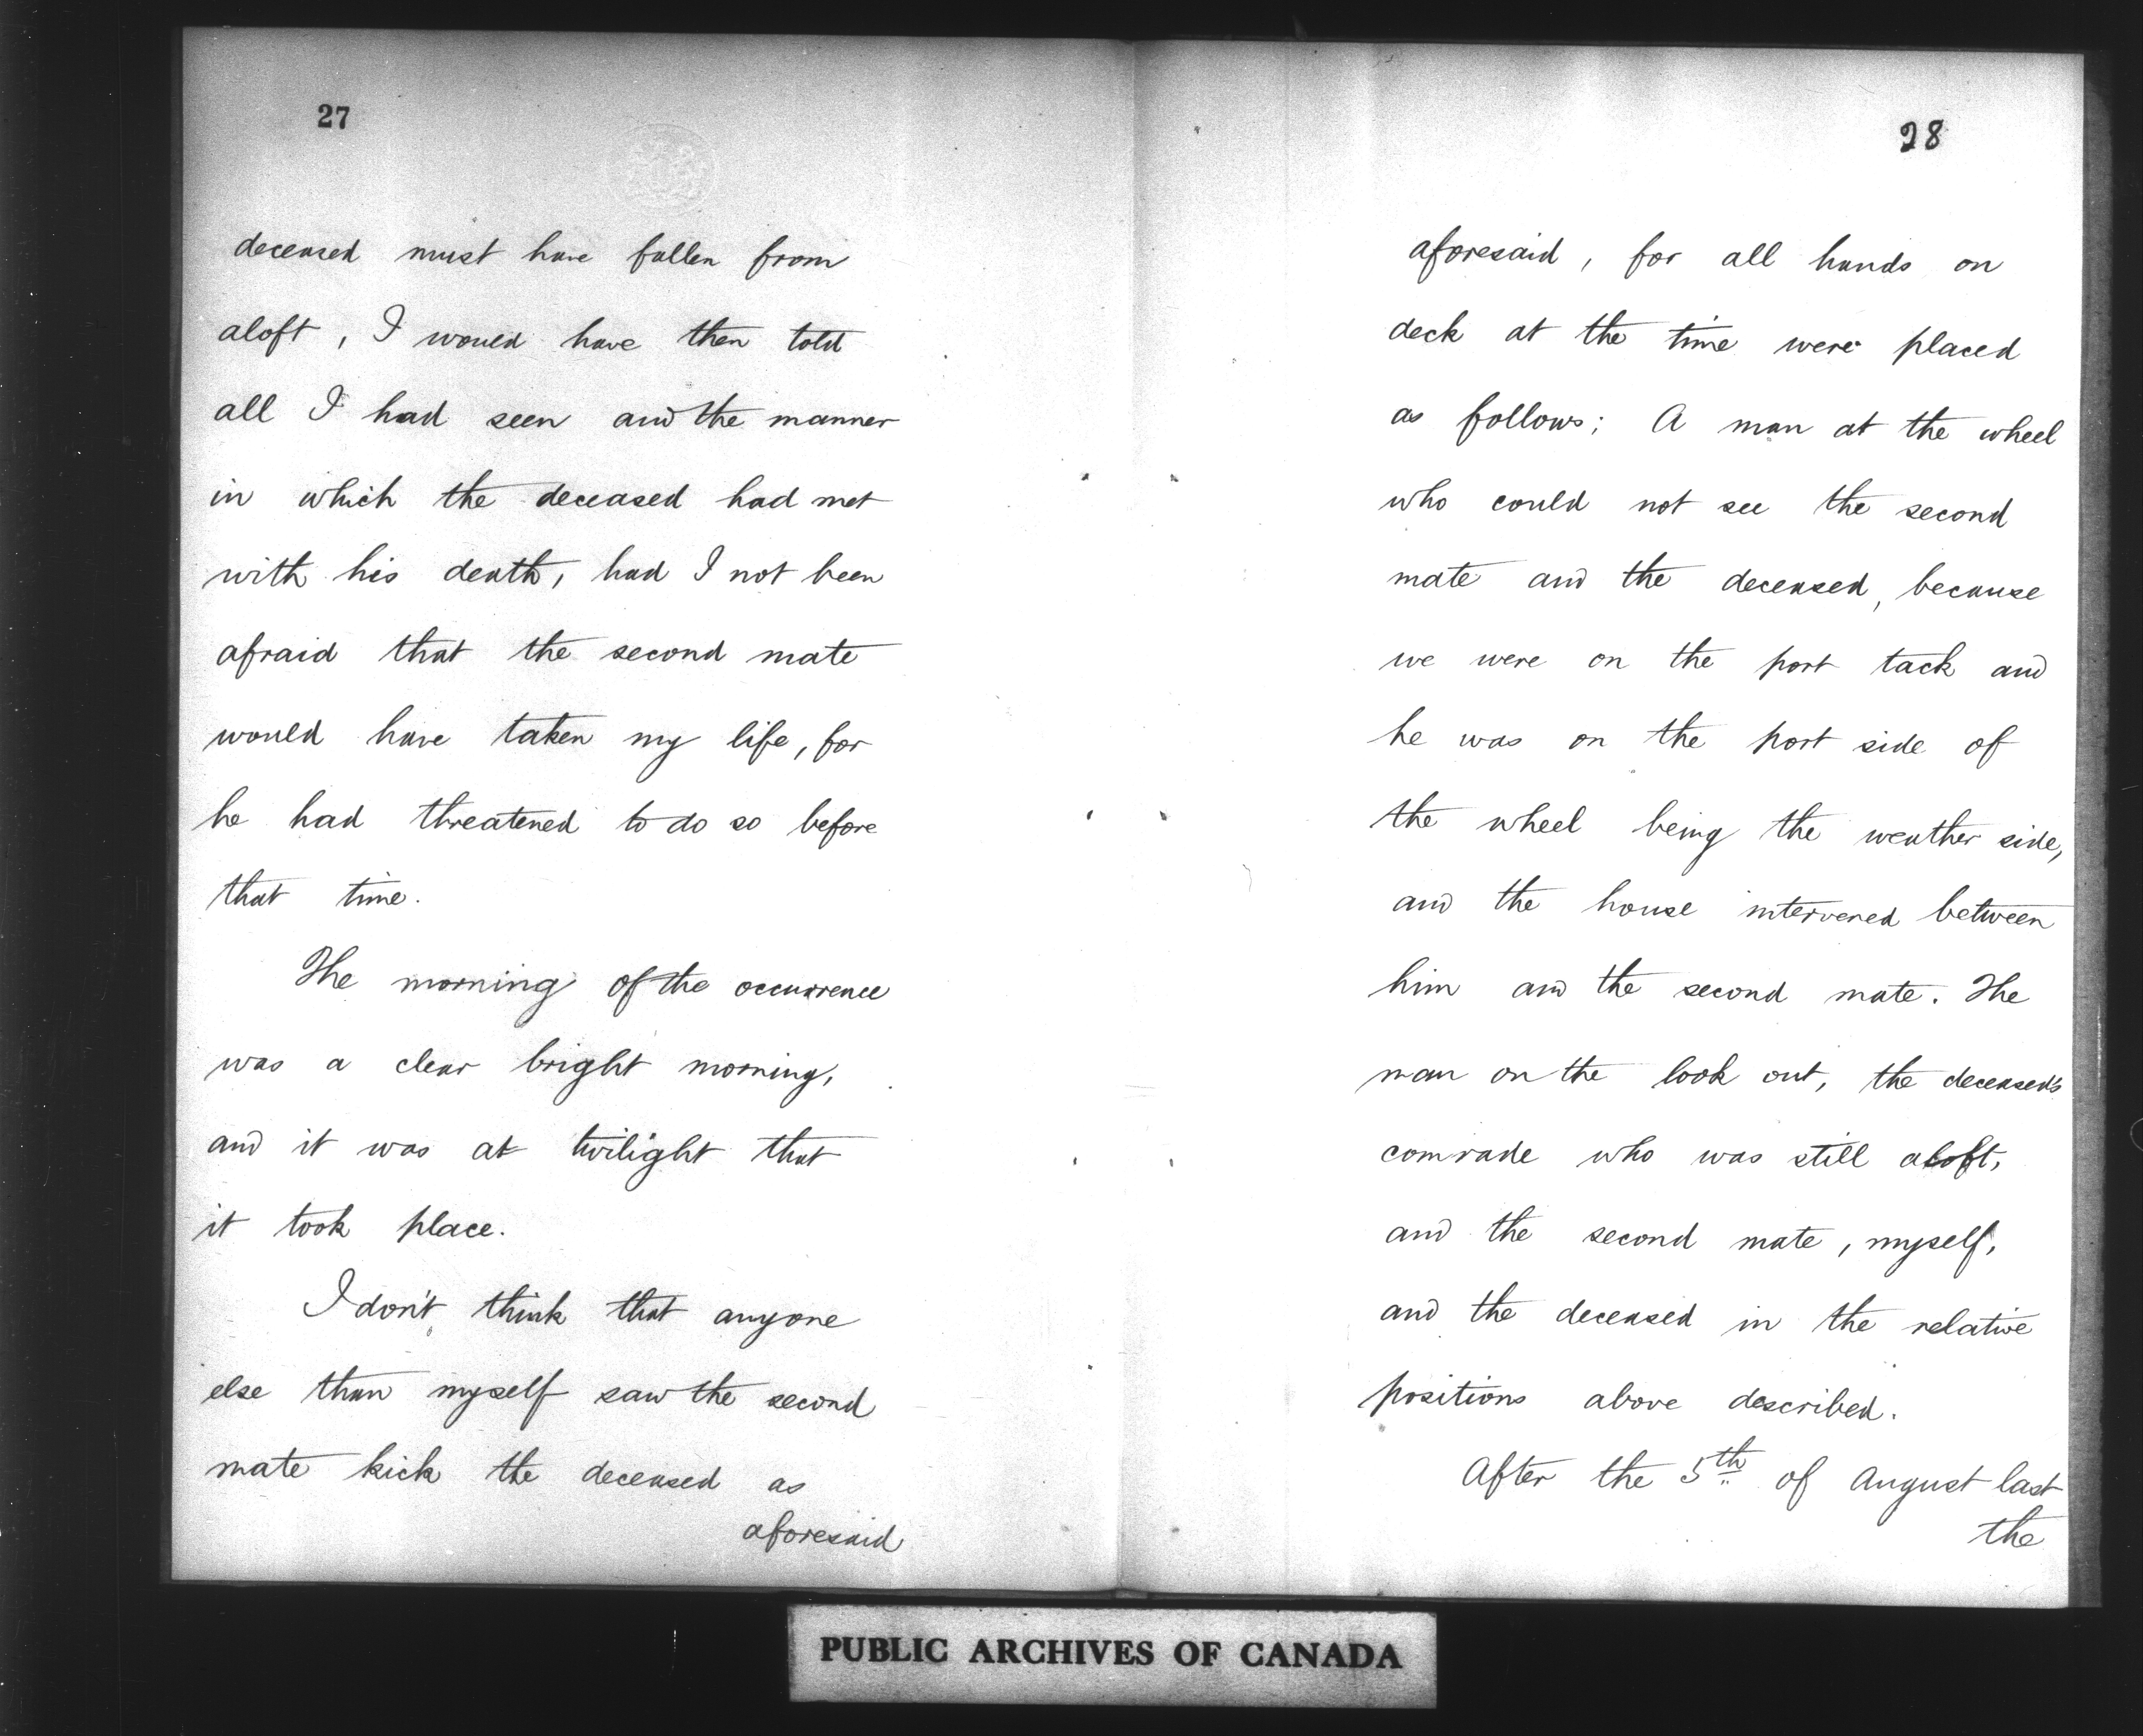 27
deceased must have fallen from
aloft, I would have then told
all I had seen and the manner
in which the deceased had met
with his death, had I not been
afraid that the second mate
would have taken my life, for
he had threatened to do so before
that time.
The morning of the occurrence
was a clear bright morning,
and it was at twilight that
it took place.
I don't think that anyone
else than myself saw the second
mate kick the deceased as
aforesaid
28
aforesaid, for all hands on
deck at the time were placed
as follows; A man at the wheel
who could not see the second
mate and the deceased, because
we were on the port tack and
he was on the port side of
the wheel being the weather side,
and the house intervened between
him and the second mate. The
man on the look out, the deceased's
comrade who was still aloft,
and the second mate, myself,
and the deceased in the relative
positions above described.
After the 5th of August last
the
PUBLIC ARCHIVES OF CANADA